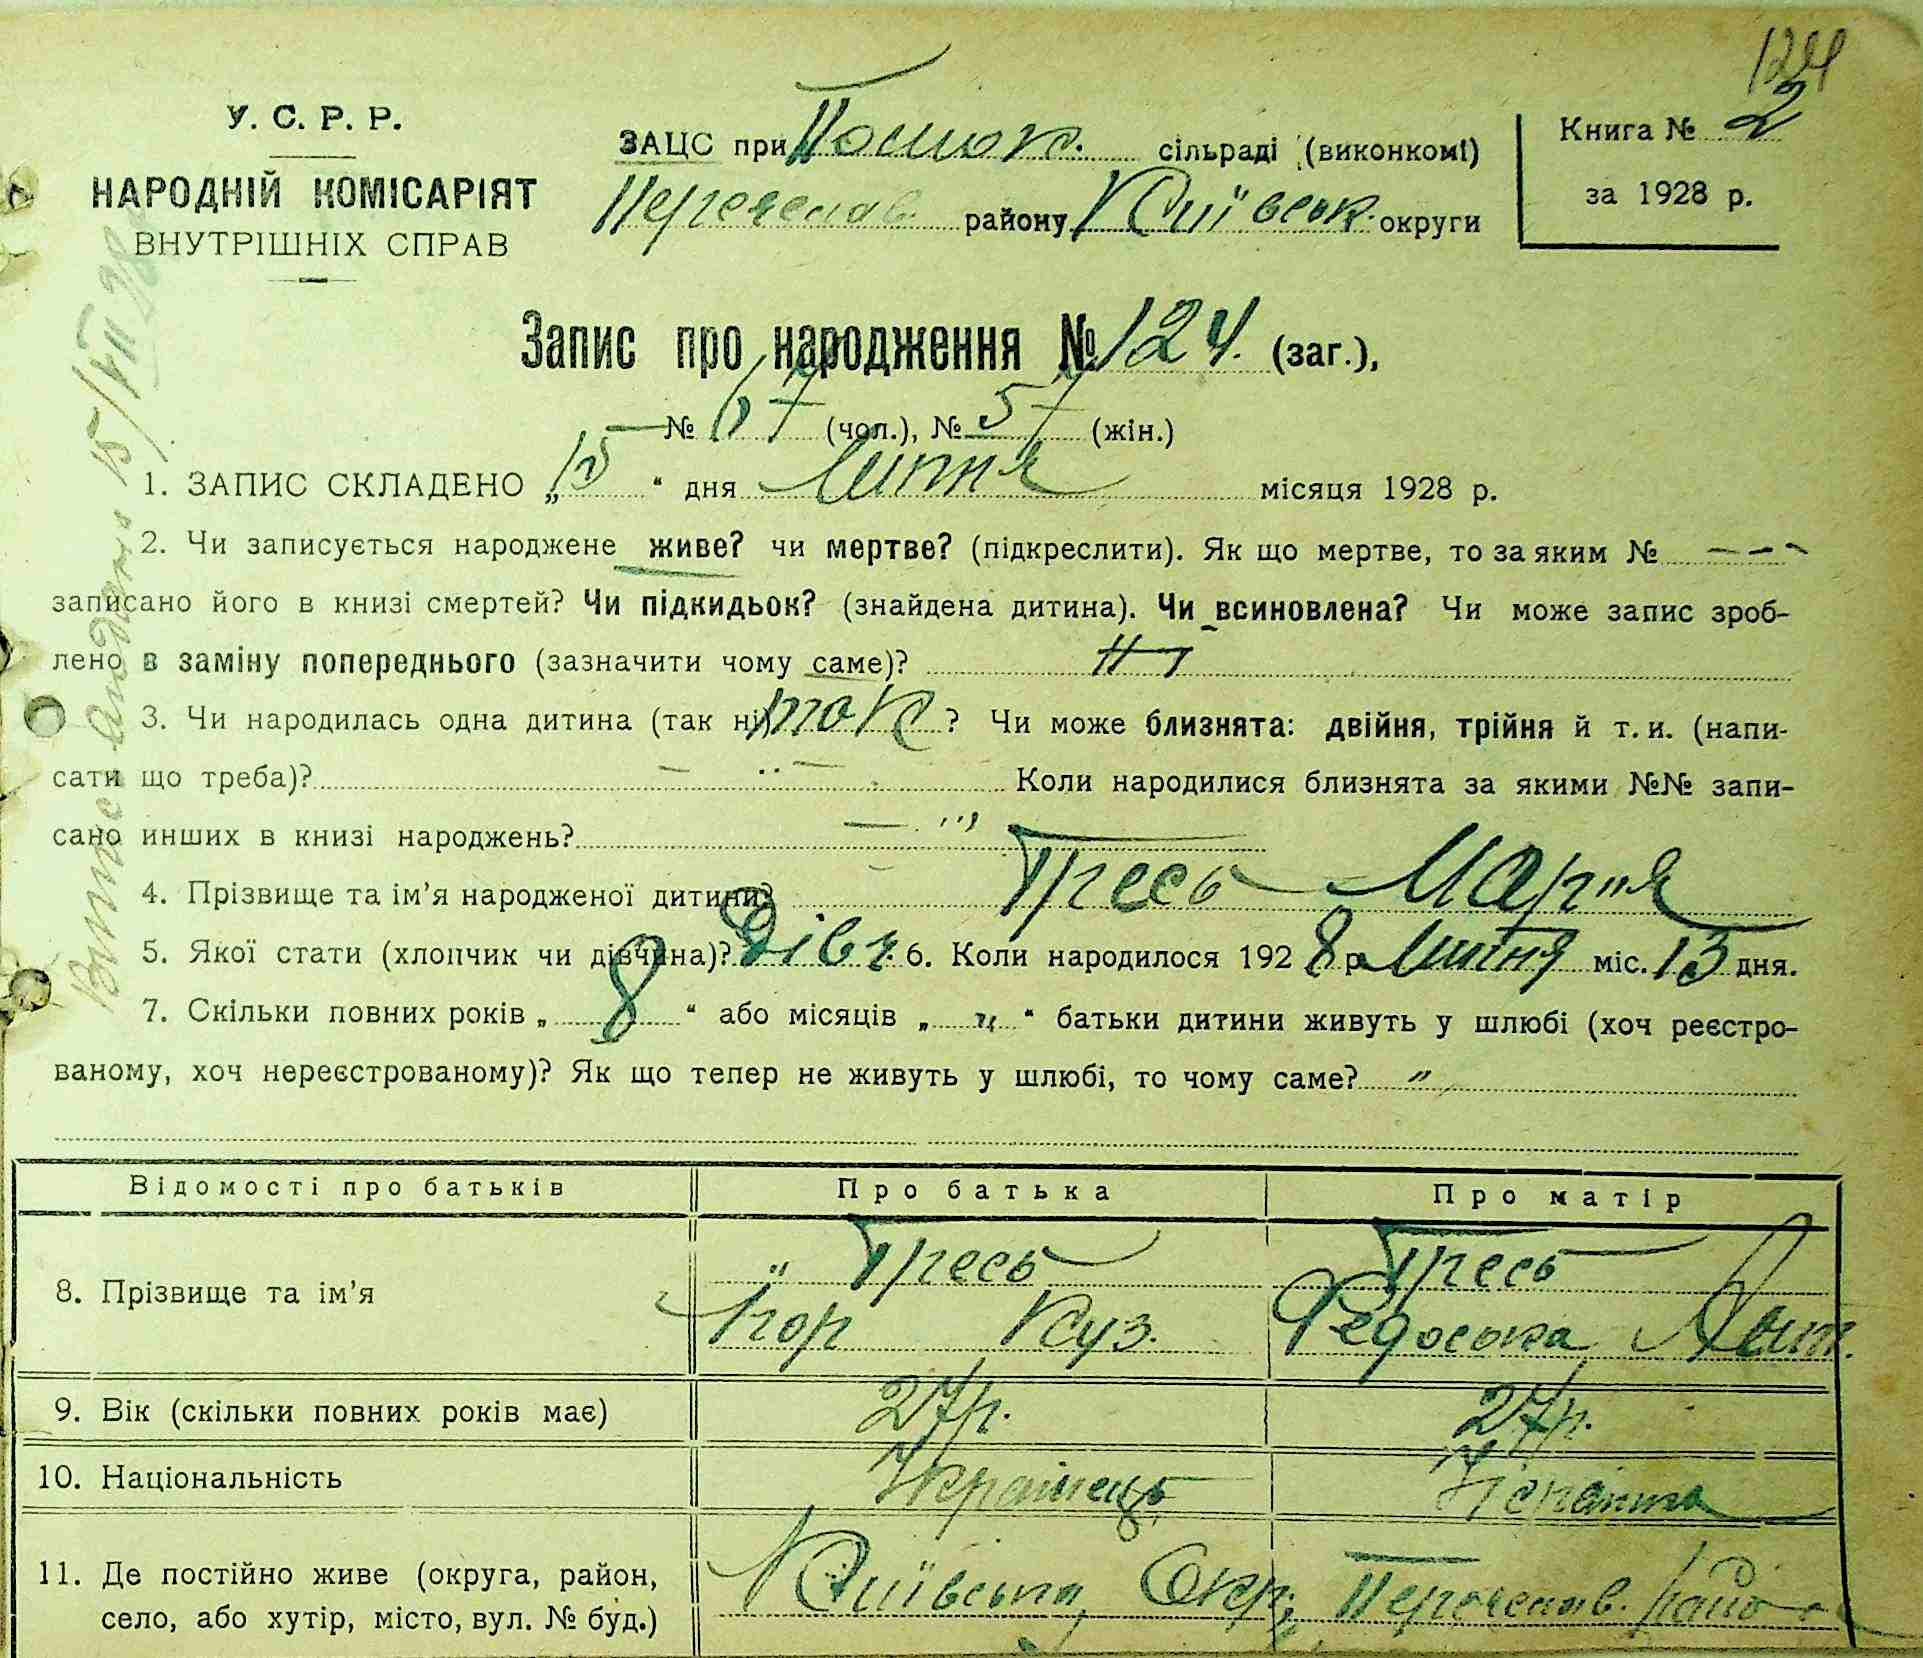 124
У. С. Р. Р.
НАРОДНІЙ КОМІСАРІЯТ
ВНУТРІШНІХ СПРАВ
ЗАЦС при сільраді (виконкомі)
Переяслав. району Київськ. округи
Книга № 2
за 1928 р.
Запис про народження № 124. (заг.),
№ 67 (чол.), № 57 (жін.)
1. ЗАПИС СКЛАДЕНО „15“ дня Липня місяця 1928 р.
2. Чи записується народжене живе? чи мертве? (підкреслити). Як що мертве, то за яким № – – –
записано його в книзі смертей? Чи підкидьок? (знайдена дитина). Чи всиновлена? Чи може запис зроб-
лено в заміну попереднього (зазначити чому саме)? Ні
3. Чи народилась одна дитина (так ні) так? Чи може близнята: двійня, трійня й т. и. (напи-
сати що треба)? Коли народилися близнята за якими №№ запи-
сано инших в книзі народжень?
4. Прізвище та ім'я народженої дитини? Тресь Марія
5. Якої стати (хлопчик чи дівчина)? Дівч. 6. Коли народилося 1928 р. Липня міс. 13 дня.
7. Скільки повних років „8“ або місяців „ “ батьки дитини живуть у шлюбі (хоч реєстро-
ваному, хоч нереєстрованому)? Як що тепер не живуть у шлюбі, то чому саме? "
Відомості про батьків Про батька Про матір
8. Прізвище та ім'я Тресь Тресь
Ігор Куз. Федоська
9. Вік (скільки повних років має) 27 р. 27 р.
10. Національність Українець Українка
11. Де постійно живе (округа, район, Київська Окр. Переяслав. район
село, або хутір, місто, вул. № буд.)
15/VII 28